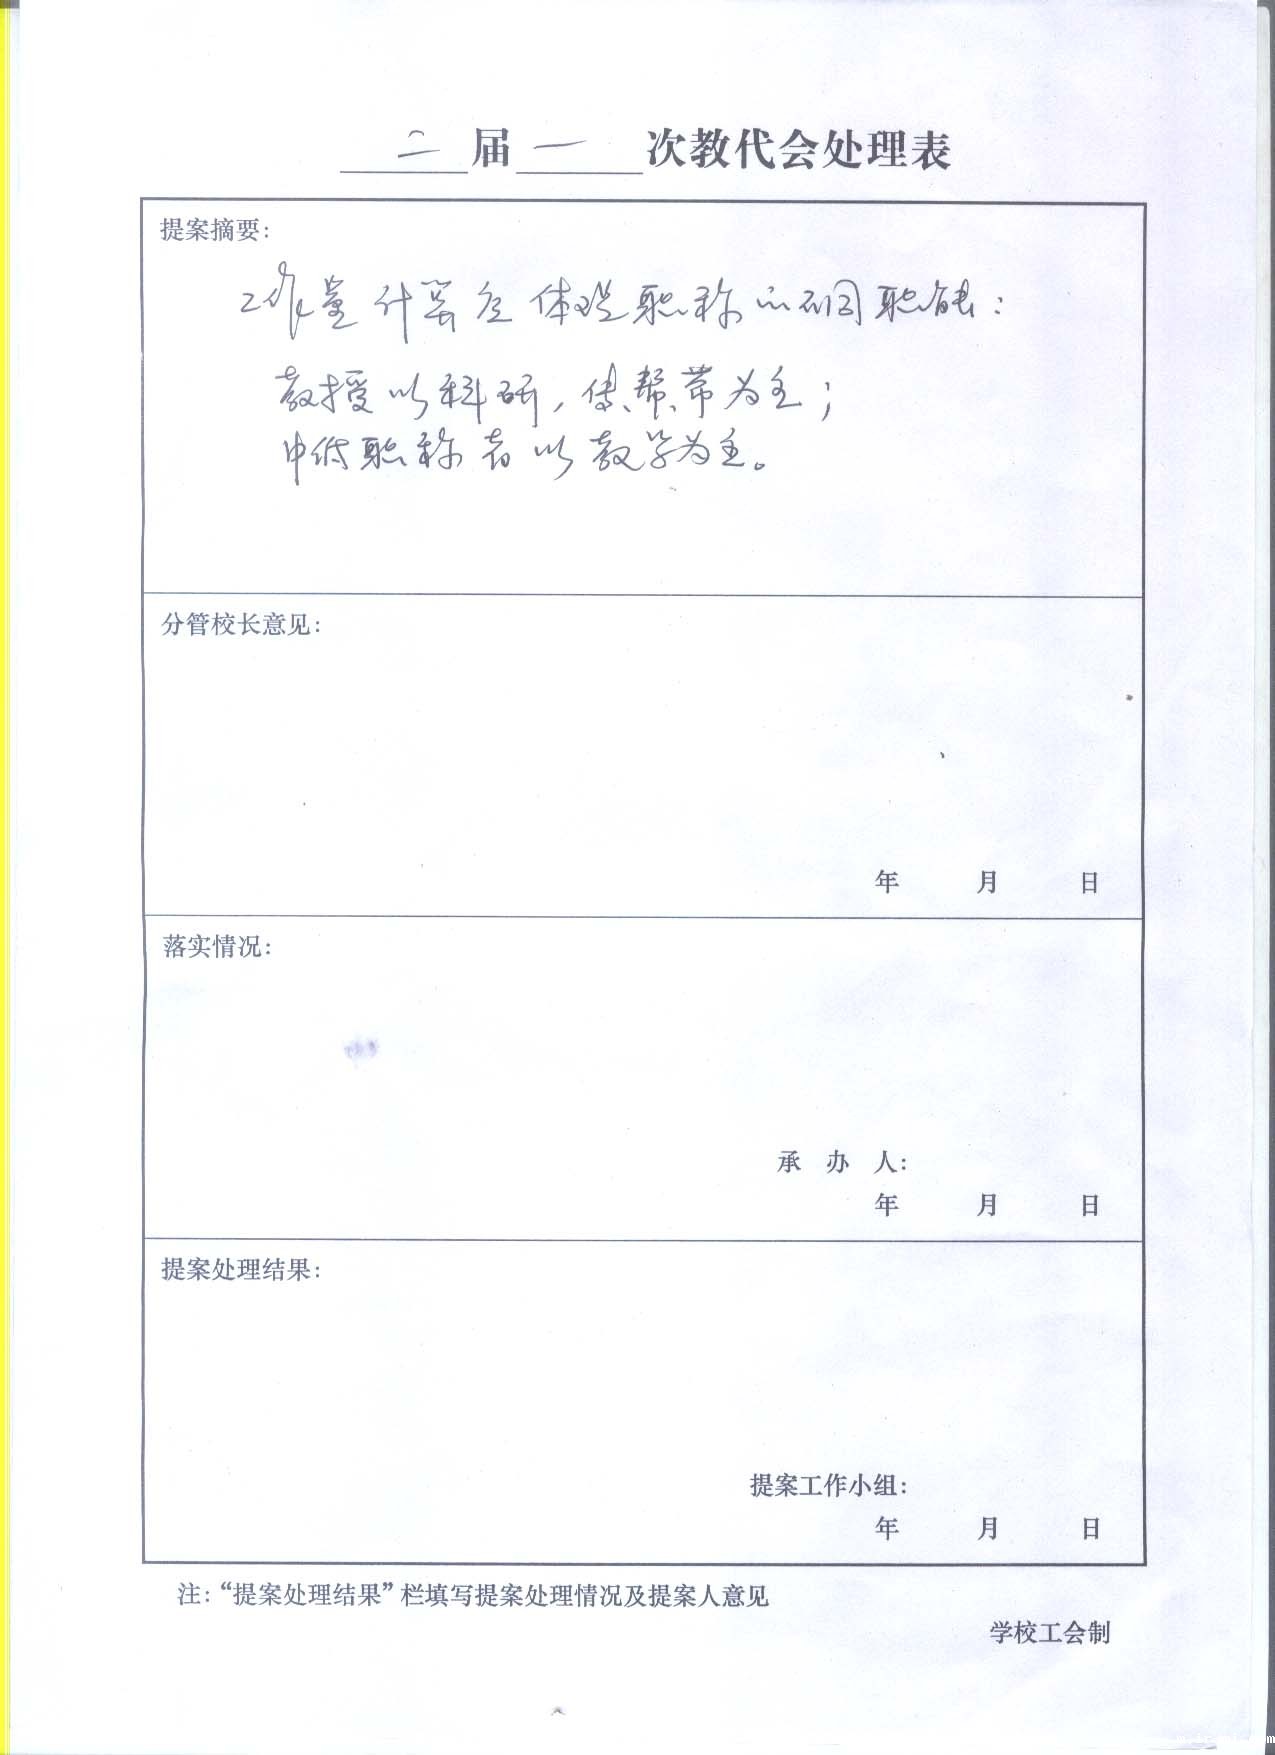 二届一次教代会处理表
提案摘要：
工作量计算应体现职称的不同职能：
教授以科研，传、帮、带为主；
中低职称者以教学为主。
分管校长意见：
年 月 日
落实情况：
承 办 人：
年 月 日
提案处理结果：
提案工作小组：
年 月 日
注：“提案处理结果”栏填写提案处理情况及提案人意见
学校工会制